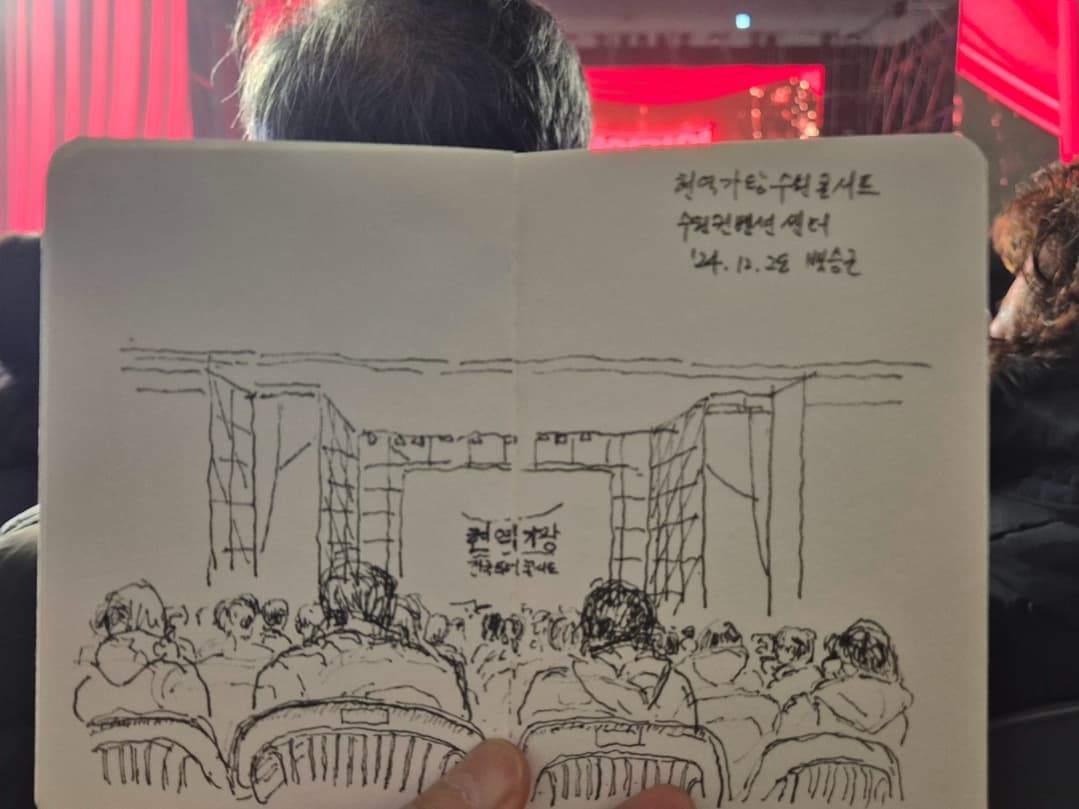 현역가왕 수원콘서트
수원컨벤션센터
'24.12.28 백승근
현역가왕
전국투어 콘서트